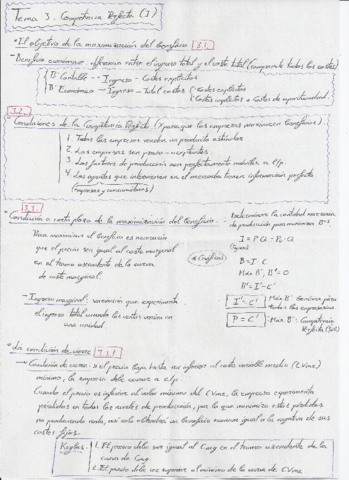 Tema 3. Competencia Perfecta (I)
* El objetivo de la maximización del beneficio 3.1.
- Beneficio económico: diferencia entre el ingreso total y el coste total (comprende todos los costes)
B° Contable -- Ingreso - Costes explícitos
B° Económico -- Ingreso - Total costes (Costes explícitos
(Costes implícitos o Costes de oportunidad.
3.2.
Condiciones de la Competencia Perfecta (para que las empresas maximicen beneficios)
1. Todas las empresas venden un producto estándar
2. Las empresas son precio-aceptantes
3. Los factores de producción son perfectamente móviles a l/p.
4. Los agentes que intervienen en el mercado tienen información perfecta
(empresas y consumidores)
3.3.
* Condición a corto plazo de la maximización del beneficio.
Determinamos la cantidad necesaria
de producción para maximizar B°
Para maximizar el beneficio es necesario
que el precio sea igual al coste marginal
en el tramo ascendente de la curva
de coste marginal.
(Gráfica)
I = P·Q
B = I-C
Max B°, B'=0
B' = I'-C'
- Ingreso marginal: variación que experimenta
el ingreso total cuando las ventas varían en
una unidad.
I' = C' Max B°
todas las empresas.
P = C' Max B° Competencia
Perfecta
* La condición de cierre 3.4.
- Condición de cierre: si el precio baja hasta ser inferior al coste variable medio (CVme)
mínimo, la empresa debe cerrar a c/p.
Cuando el precio es inferior al valor mínimo del CVme, la empresa experimenta
pérdidas en todos los niveles de producción, por lo que minimiza estas pérdidas
no produciendo nada, así solo obtendrá un beneficio económico igual a la negativa de sus
costes fijos.
Reglas:
1. El precio debe ser igual al Cmg en el tramo ascendente de la
curva de Cmg.
2. El precio debe ser superior al mínimo de la curva de CVme.